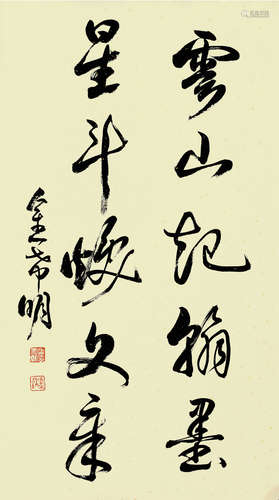 雲山起翰墨
星斗煥文章
金希明